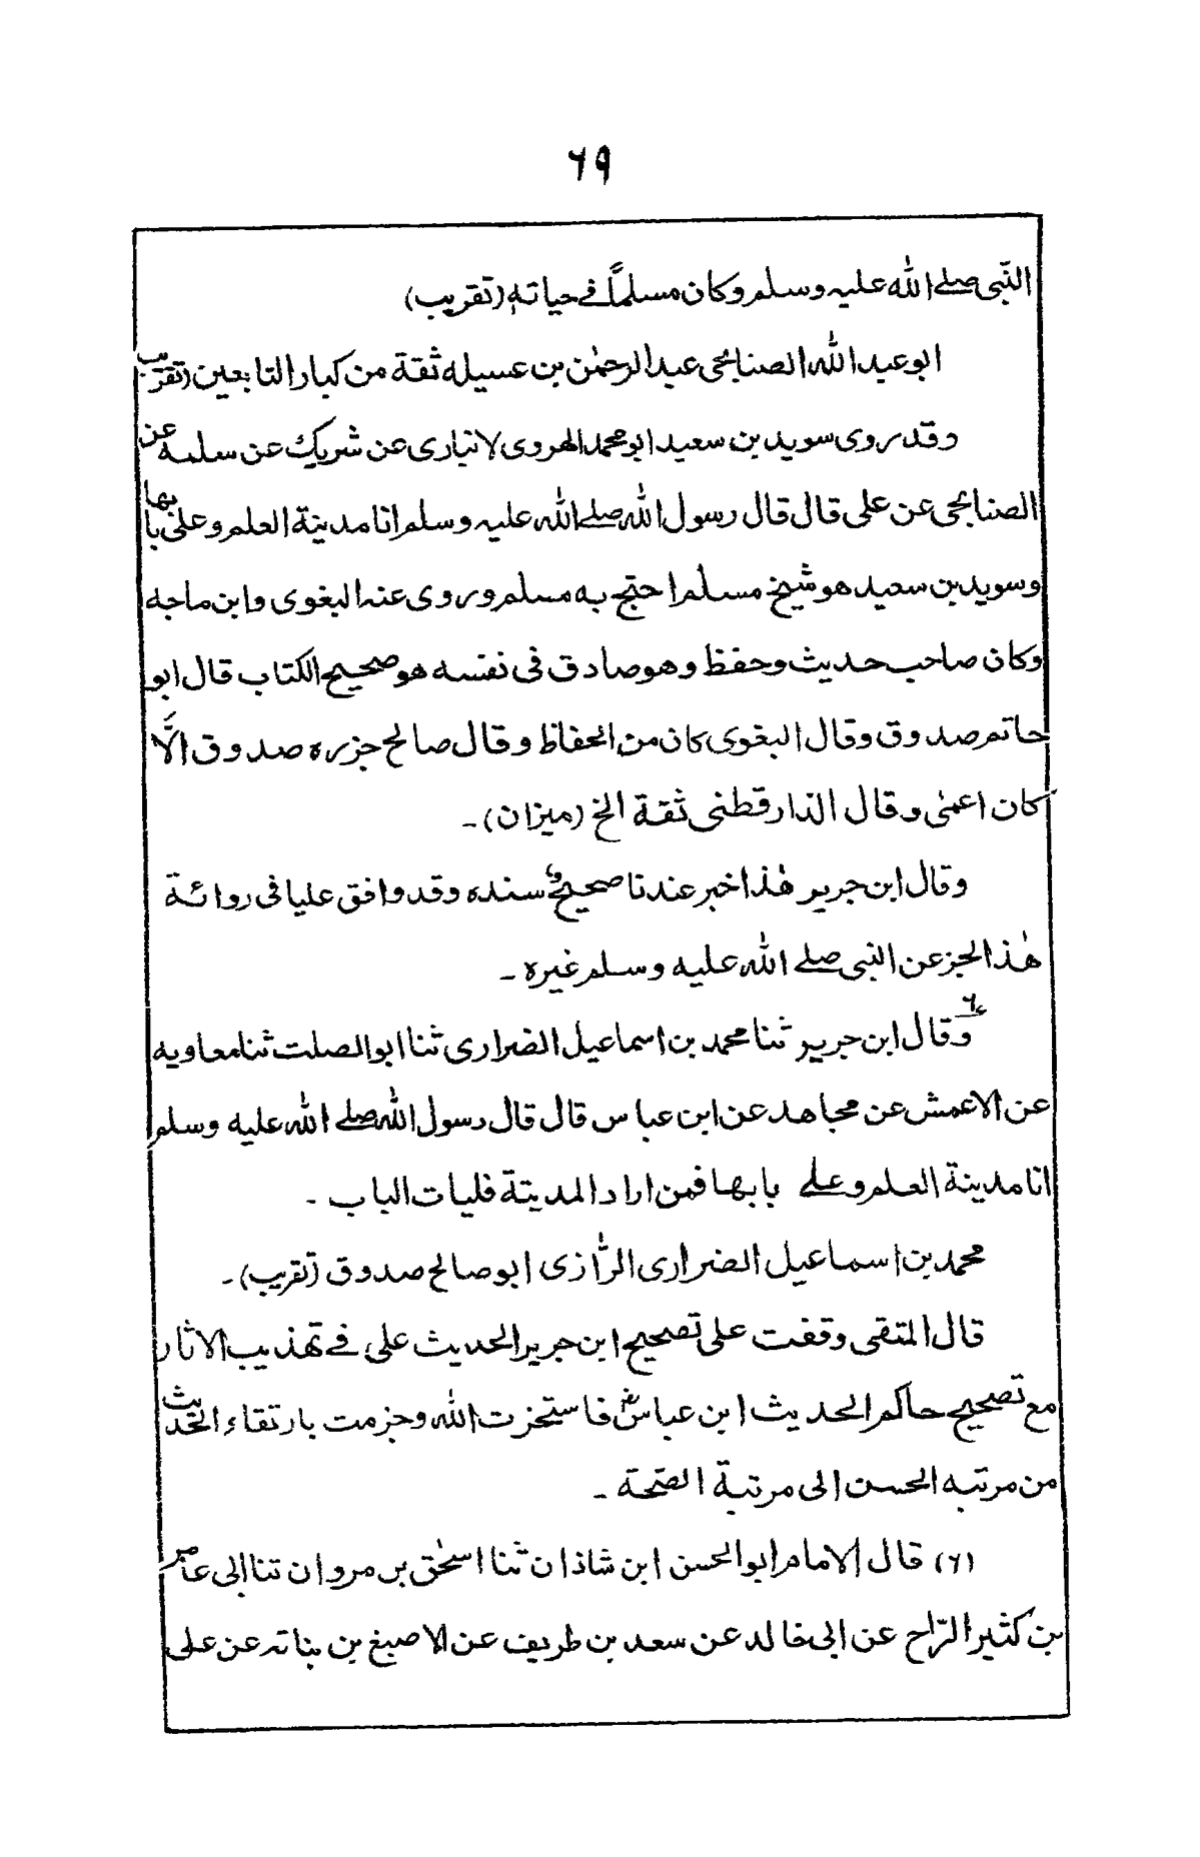 ٦٩
النّبى صلے اللّٰه عليه وسلم وكان مسلماً فے حياته (تقريب)
ابو عبد اللّٰه الصنابحى عبد الرحمٰن بن عسيله ثقة من كبار التابعين (تقريب
وقد روى سويد بن سعيد ابو محمد الهروى لانبارى عن شريك عن سلمه عن
الصنابحى عن على قال قال رسول اللّٰه صلے اللّٰه عليه وسلم انا مدينة العلم وعلى بابها
وسويد بن سعيد هو شيخ مسلم احتج به مسلم وروى عنه البغوى وابن ماجه
وكان صاحب حديث وحفظ وهو صادق فى نفسه هو صحيح الكتاب قال ابو
حاتم صدوق وقال البغوى كان من الحفاظ وقال صالح جزره صدوق الاَّ
كان اعمىٰ وقال الدّارقطنى ثقة الخ (ميزان) ۔
وقال ابن جرير هٰذا خبر عندنا صحيح سنده وقد وافق عليا فى روائة
هٰذا الجز عن النبى صلے اللّٰه عليه وسلم غيره ۔
وقال ابن جرير ثنا محمد بن اسماعيل الضرارى ثنا ابو الصلت ثنا معاويه
عن الاعمش عن مجاهد عن ابن عباس قال قال رسول اللّٰه صلے اللّٰه عليه وسلم
انا مدينة العلم وعلے بابها فمن اراد المدينة فليات الباب ۔
محمد بن اسماعيل الضرارى الرّازى ابو صالح صدوق (تقريب) ۔
قال المتقى وقفت على تصحيح ابن جرير الحديث على فے تهذيب الاثار
مع تصحيح حاكم الحديث ابن عباسؓ فاستخرت اللّٰه وجزمت بارتقاء الحديث
من مرتبه الحسن الى مرتبة الصّحة ۔
(٦) قال الامام ابو الحسن ابن شاذان ثنا اسحٰق بن مروان ثنا ابى عامر
بن كثير الرّاح عن ابى خالد عن سعد بن طريف عن الاصبغ بن بناته عن على